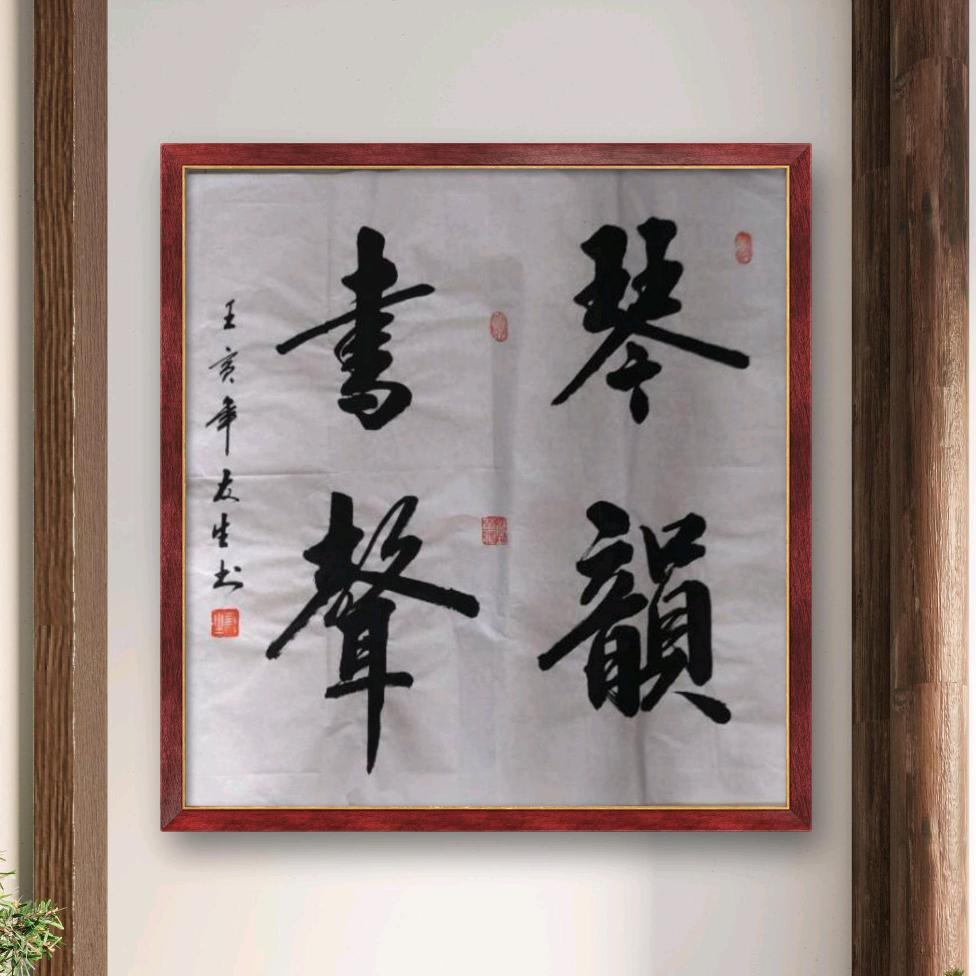 琴韻
書聲
王亥年友生书